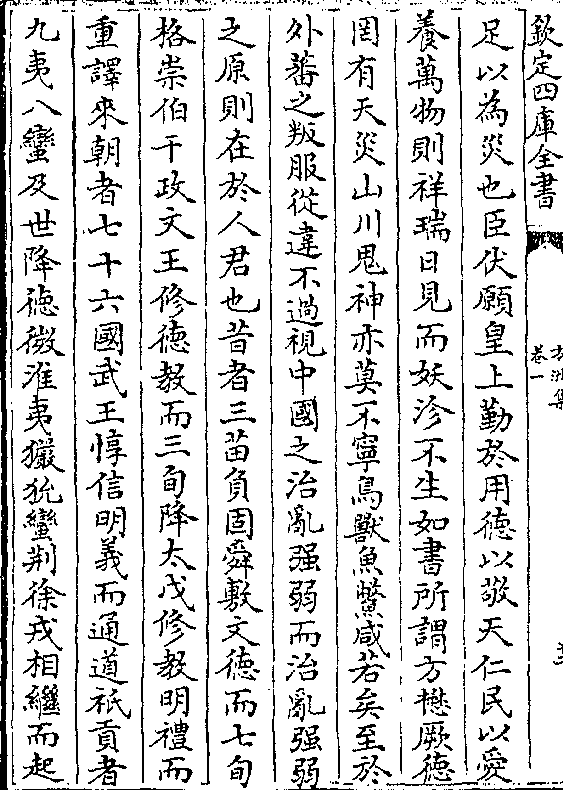 欽定四庫全書
方洲集
卷一
足以為災也臣伏願皇上勤於用德以敬天仁民以愛
養萬物則祥瑞日見而妖沴不生如書所謂方懋厥德
罔有天災山川鬼神亦莫不寧鳥獸魚鱉咸若矣至於
外蕃之叛服從違不過視中國之治亂强弱而治亂强弱
之原則在於人君也昔者三苗負固舜敷文德而七旬
格崇伯干政文王修德教而三旬降太戊修教明禮而
重譯來朝者七十六國武王惇信明義而通道祇貢者
九夷八蠻及世降德微淮夷玁狁蠻荆徐戎相繼而起